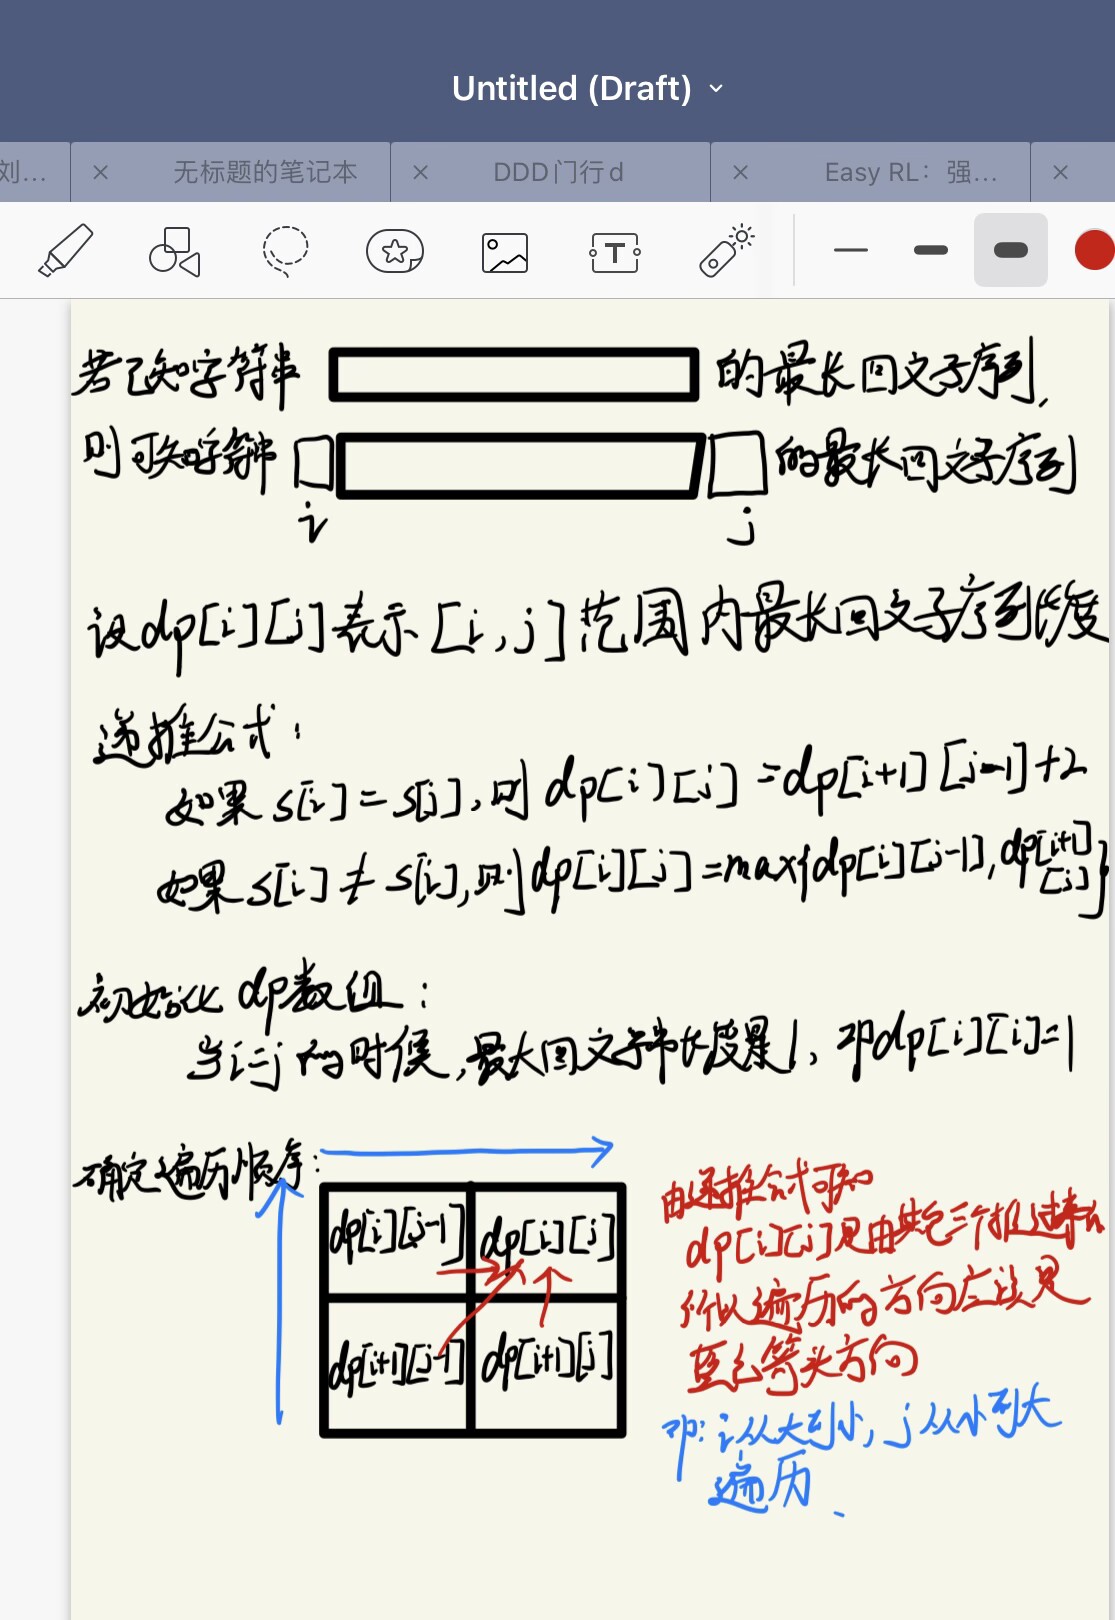 Untitled (Draft)
刘...
无标题的笔记本
DDD门行d
Easy RL：强...
T
若已知字符串 的最长回文子序列,
则可知字符串 的最长回文子序列
i j
设dp[i][j]表示[i,j]范围内最长回文子序列长度
递推公式:
如果s[i]=s[j],则dp[i][j]=dp[i+1][j-1]+2
如果s[i]≠s[i],则dp[i][j]=max{dp[i][j-1],dp[i+1][j]}
初始化dp数组:
当i=j的时候,最长回文子串长度是1,即dp[i][i]=1
确定遍历顺序:
dp[i][j-1] dp[i][j]
dp[i+1][j-1] dp[i+1][j]
由递推公式可知
dp[i][j]是由其它三个推过来的
所以遍历的方向应该是
蓝色箭头方向
即:i从大到小,j从小到大
遍历.